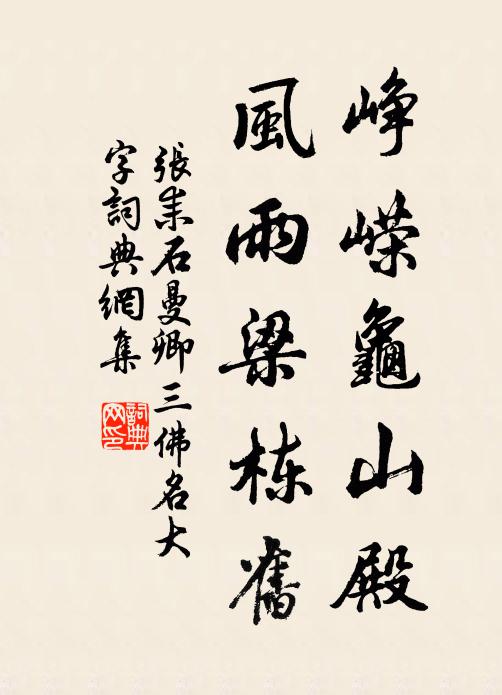 峥嵘龜山殿
風雨梁栋舊
張耒石曼卿三佛名大
字詞典網集
詞典网印